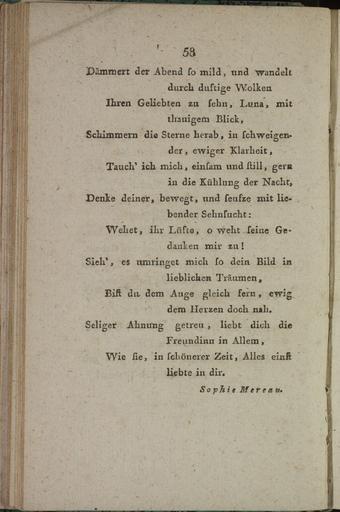 58
Dämmert der Abend ſo mild, und wandelt
durch duftige Wolken
Ihren Geliebten zu ſehn, Luna, mit
thauigem Blick,
Schimmern die Sterne herab, in ſchweigen-
der, ewiger Klarheit,
Tauch' ich mich, einſam und ſtill, gern
in die Kühlung der Nacht,
Denke deiner, bewegt, und ſeufze mit lie-
bender Sehnſucht:
Wehet, ihr Lüfte, o weht ſeine Ge-
danken mir zu!
Sieh', es umringet mich ſo dein Bild in
lieblichen Träumen,
Biſt du dem Auge gleich fern, ewig
dem Herzen doch nah.
Seliger Ahnung getreu, liebt dich die
Freundinn in Allem,
Wie ſie, in ſchönerer Zeit, Alles einſt
liebte in dir.
Sophie Mereau.